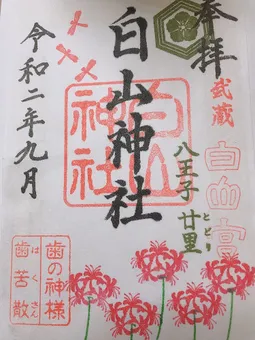 奉拝
武蔵
白山宮
八王子 廿里
とどり
白山神社
白山
神社
令和二年九月
歯の神様
はくさん
歯苦散